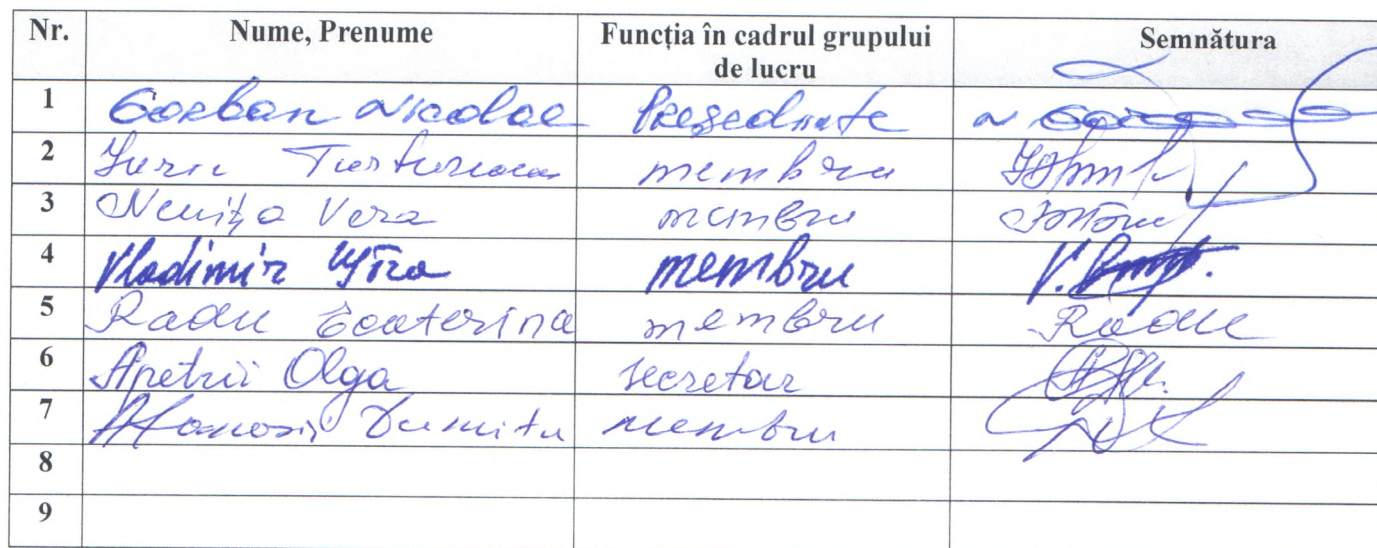 Nr. Nume, Prenume Funcția în cadrul grupului de lucru Semnătura
1 Gorban Nicolae Președinte
2 membru
3 Neniță Vera membru
4 Vladimir membru
5 Radu Ecaterina membru Radu
6 Apetrii Olga secretar
7 Afanasii Dumitru membru
8
9